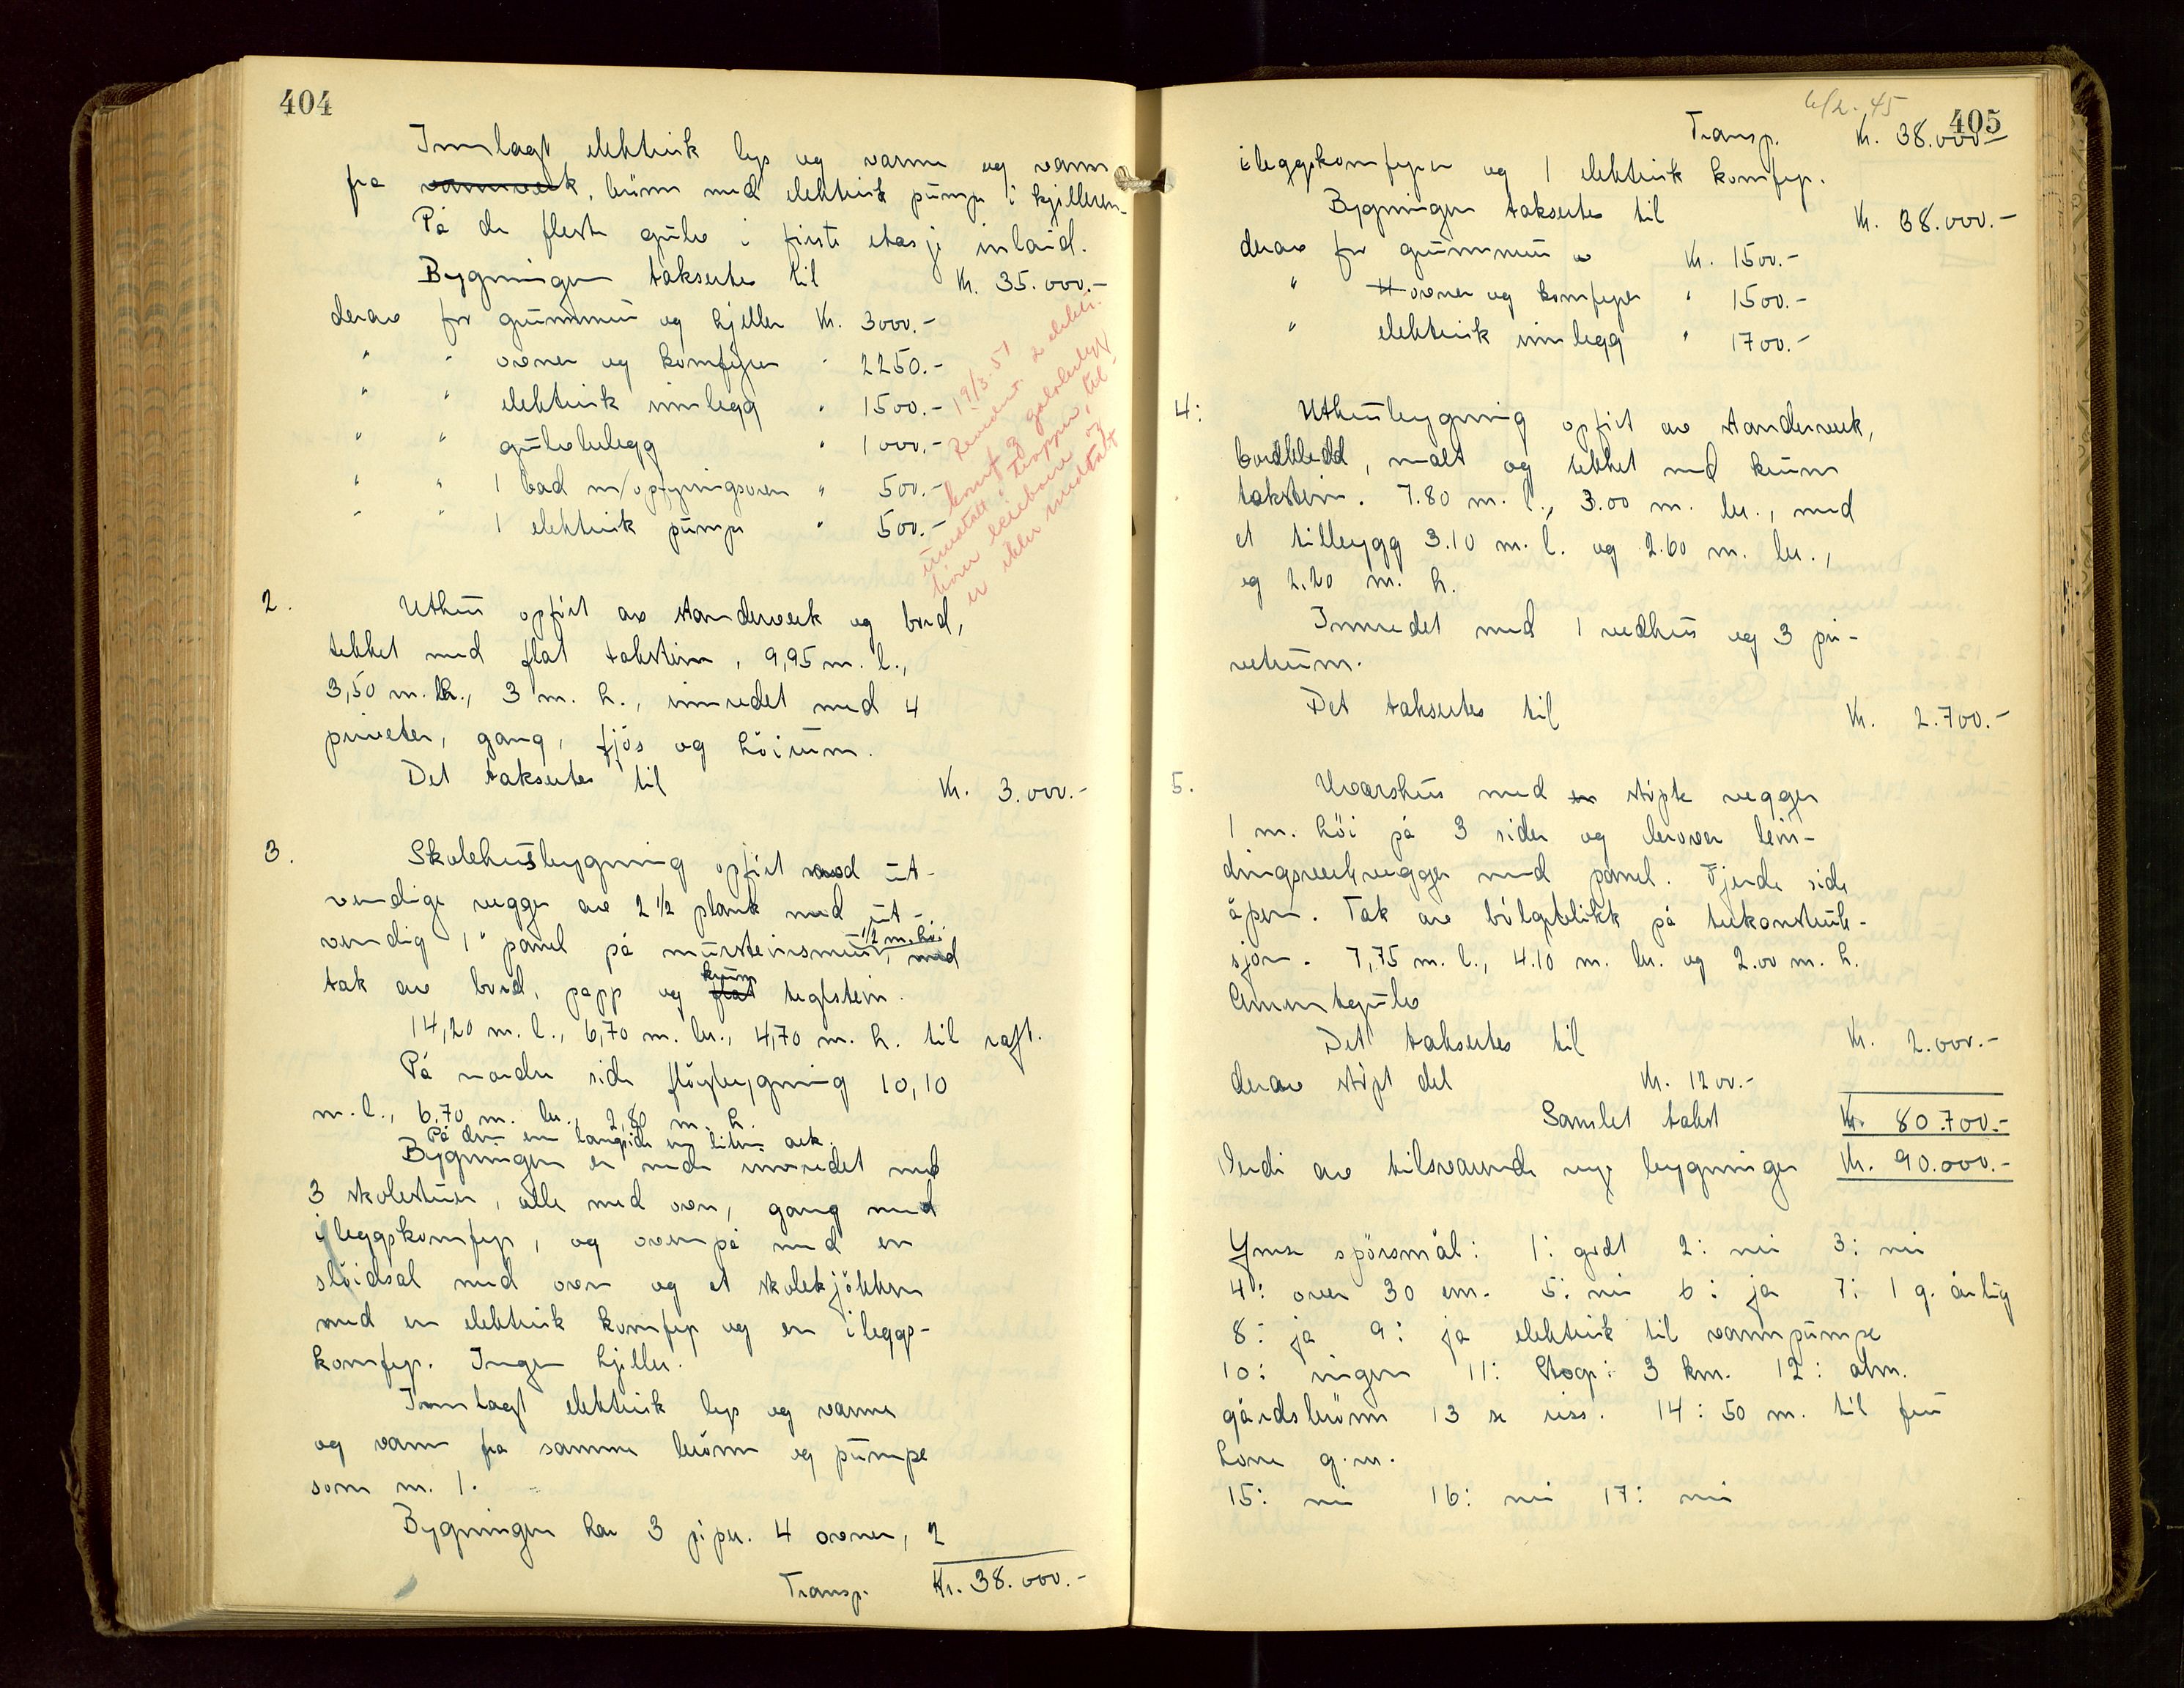 404
Innlagt elektrisk lys og varme og vann
fra vannverk, brönn med elektrisk pumpe i kjelleren.
På de fleste gulv i förste etasje inlaid.
Bygningen takseres til Kr. 35.000.-
derav for grunnmur og kjeller Kr. 3000.-
" " ovner og komfyrer " 2250.-
" " elektrisk innlegg " 1500.-
" " gulvbelegg " 1000.-
" " 1 bad m/opfyringsovn " 500.-
" " 1 elektrisk pumpe " 500.-
19/3.51
2 elektr.
komf.
er ikke medtatt
2. Uthus opfört av standerverk og bord,
tekket med flat takstein, 9,95 m. l.,
3,50 m. br., 3 m. h., innredet med 4
priveter, gang, fjös og höirum.
Det takseres til Kr. 3.000.-
3. Skolehusbygning opfört med ut-
vendige vegger av 2 1/2 plank med ut-
vendig 1" panel på mursteinsmur, 1/2 m. höi med
tak av bord, papp og flat krum teglstein.
14,20 m. l., 6,70 m. br., 4,70 m. h. til raft.
På nordre side flöybygning 10,10
m. l., 6,70 m. br., 2,80 m. h.
På den ene langside en liten ark.
Bygningen er nede innredet med
3 skolestuer, alle med ovn, gang med
ileggskomfyr, og ovenpå med en
slöidsal med ovn og et skolekjökken
med en elektrisk komfyr og en ileggs-
komfyr. Ingen kjeller.
Innlagt elektrisk lys og varme
og vann fra samme brönn og pumpe
som nr. 1.
Bygningen har 3 piper. 4 ovner, 2
Transp. Kr. 38.000.-
6/2.45
405
Transp. Kr. 38.000.-
ileggskomfyrer og 1 elektrisk komfyr.
Bygningen takseres til Kr. 38.000.-
derav for grunnmur Kr. 1500.-
" ovner og komfyrer " 1500.-
" elektrisk innlegg " 1700.-
4: Uthusbygning opfört av standerverk,
bordkledd, malt og tekket med krum
takstein. 7.80 m. l., 3.00 m. br., med
et tilbygg 3.10 m. l. og 2.60 m. br.,
og 2.20 m. h.
Innredet med 1 vedhus og 3 pri-
vetrum.
Det takseres til Kr. 2.700.-
5. Uværshus med en stöpte vegger
1 m. höi på 3 sider og derover bin-
dingsverkvegger med panel. Fjerde side
åpen. Tak av bölgeblikk på trekonstruk-
sjon. 7,75 m. l., 4.10 m. br. og 2.00 m. h.
Sementgulv
Det takseres til Kr. 2.000.-
derav stöpt del Kr. 1200.-
Samlet takst Kr. 80.700.-
Verdi av tilsvarende nye bygninger Kr. 90.000.-
Ymse spörsmål: 1: godt 2: nei 3: nei
4: over 30 cm. 5: nei 6: ja 7: 1 g. årlig
8: ja 9: ja elektrisk til vannpumpe
10: ingen 11: Stop: 3 km. 12: alm.
gårdsbrönn 13 se riss. 14: 50 m. til fru
g.nr.
15: nei 16: nei 17: nei